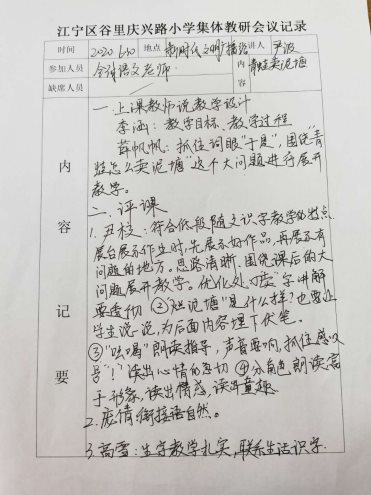 江宁区谷里庆兴路小学集体教研会议记录
时间 2020 6.10 地点 新时代文明广播站 主讲人 尹波
参加人员 全体语文老师 内容 青蛙卖泥塘
缺席人员
内容记要
一、上课教师说教学设计
李涵：教学目标、教学过程
薛帆帆：抓住词眼“于是”，围绕“青
蛙怎么卖泥塘”这个大问题进行展开
教学。
二、评课
1. 丑枝：符合低段随文识字教学的特点
展台展示作业时，先展示好作品，再展示有
问题的地方。思路清晰，围绕课后的大
问题展开教学。优化处：①“卖”字讲解
要透彻 ②“烂泥塘”是什么样？也要让
学生说一说，为后面内容埋下伏笔。
③“吆喝”朗读指导，声音要响，抓住感叹
号“！”读出心情的急切 ④分角色朗读，富
于形象，读出情感，读出童趣。
2. 庞倩：衔接语自然。
3. 高雪：生字教学扎实，联系生活识字。